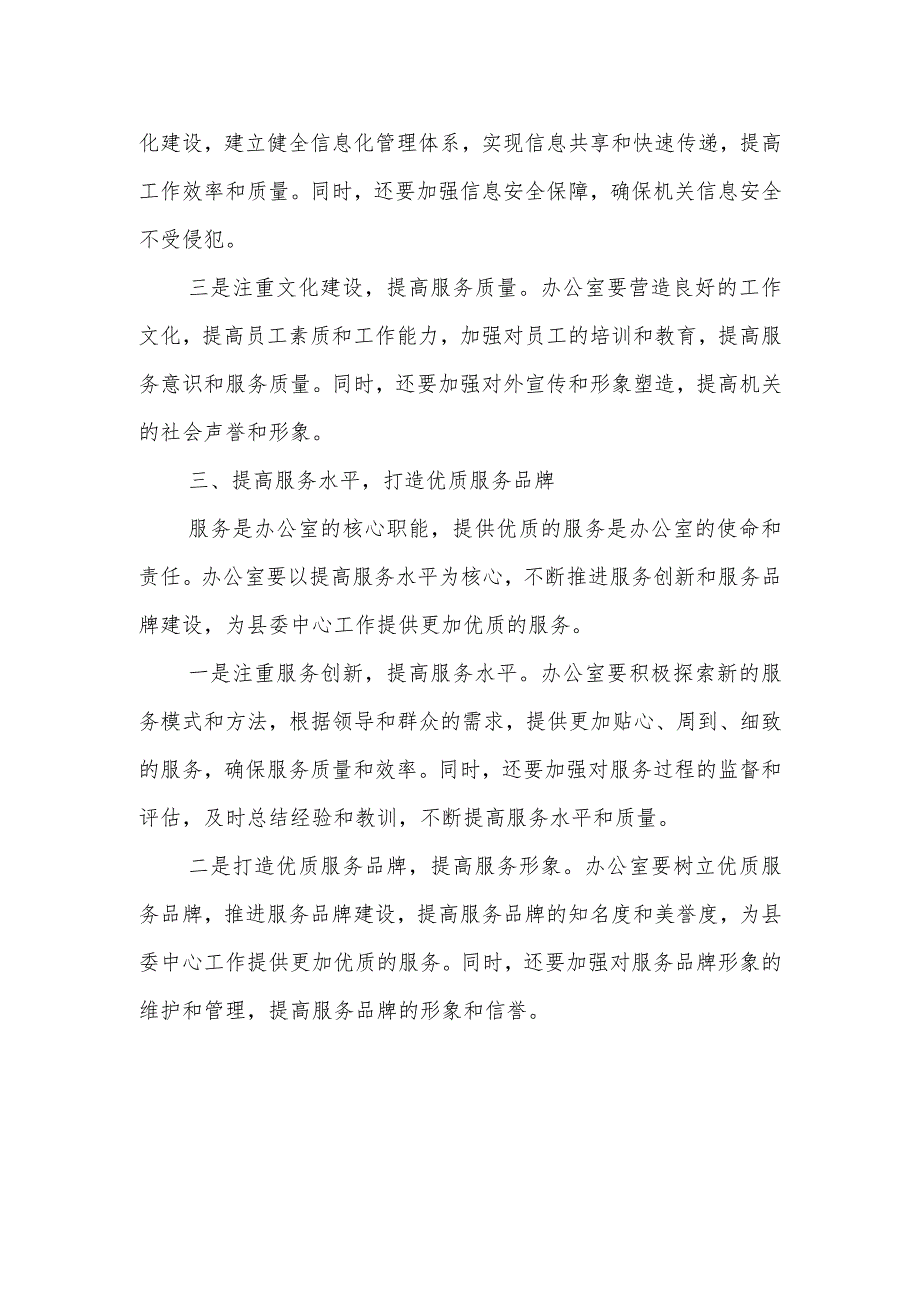 化建设，建立健全信息化管理体系，实现信息共享和快速传递，提高
工作效率和质量。同时，还要加强信息安全保障，确保机关信息安全
不受侵犯。
三是注重文化建设，提高服务质量。办公室要营造良好的工作
文化，提高员工素质和工作能力，加强对员工的培训和教育，提高服
务意识和服务质量。同时，还要加强对外宣传和形象塑造，提高机关
的社会声誉和形象。
三、提高服务水平，打造优质服务品牌
服务是办公室的核心职能，提供优质的服务是办公室的使命和
责任。办公室要以提高服务水平为核心，不断推进服务创新和服务品
牌建设，为县委中心工作提供更加优质的服务。
一是注重服务创新，提高服务水平。办公室要积极探索新的服
务模式和方法，根据领导和群众的需求，提供更加贴心、周到、细致
的服务，确保服务质量和效率。同时，还要加强对服务过程的监督和
评估，及时总结经验和教训，不断提高服务水平和质量。
二是打造优质服务品牌，提高服务形象。办公室要树立优质服
务品牌，推进服务品牌建设，提高服务品牌的知名度和美誉度，为县
委中心工作提供更加优质的服务。同时，还要加强对服务品牌形象的
维护和管理，提高服务品牌的形象和信誉。